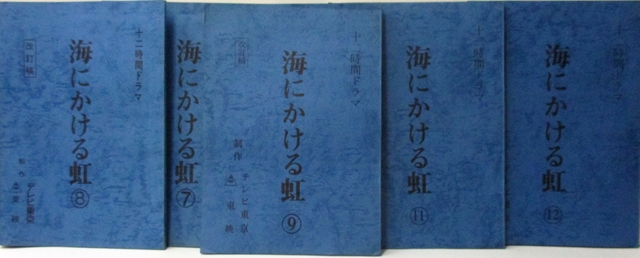 十二時間ドラマ
海にかける虹
⑧
改訂稿
制作
テレビ東京
東映
海にかける虹
⑦
十二時間ドラマ
海にかける虹
⑨
制作
テレビ東京
東映
時間ドラマ
海にかける虹
⑪
時間ドラマ
海にかける虹
⑫